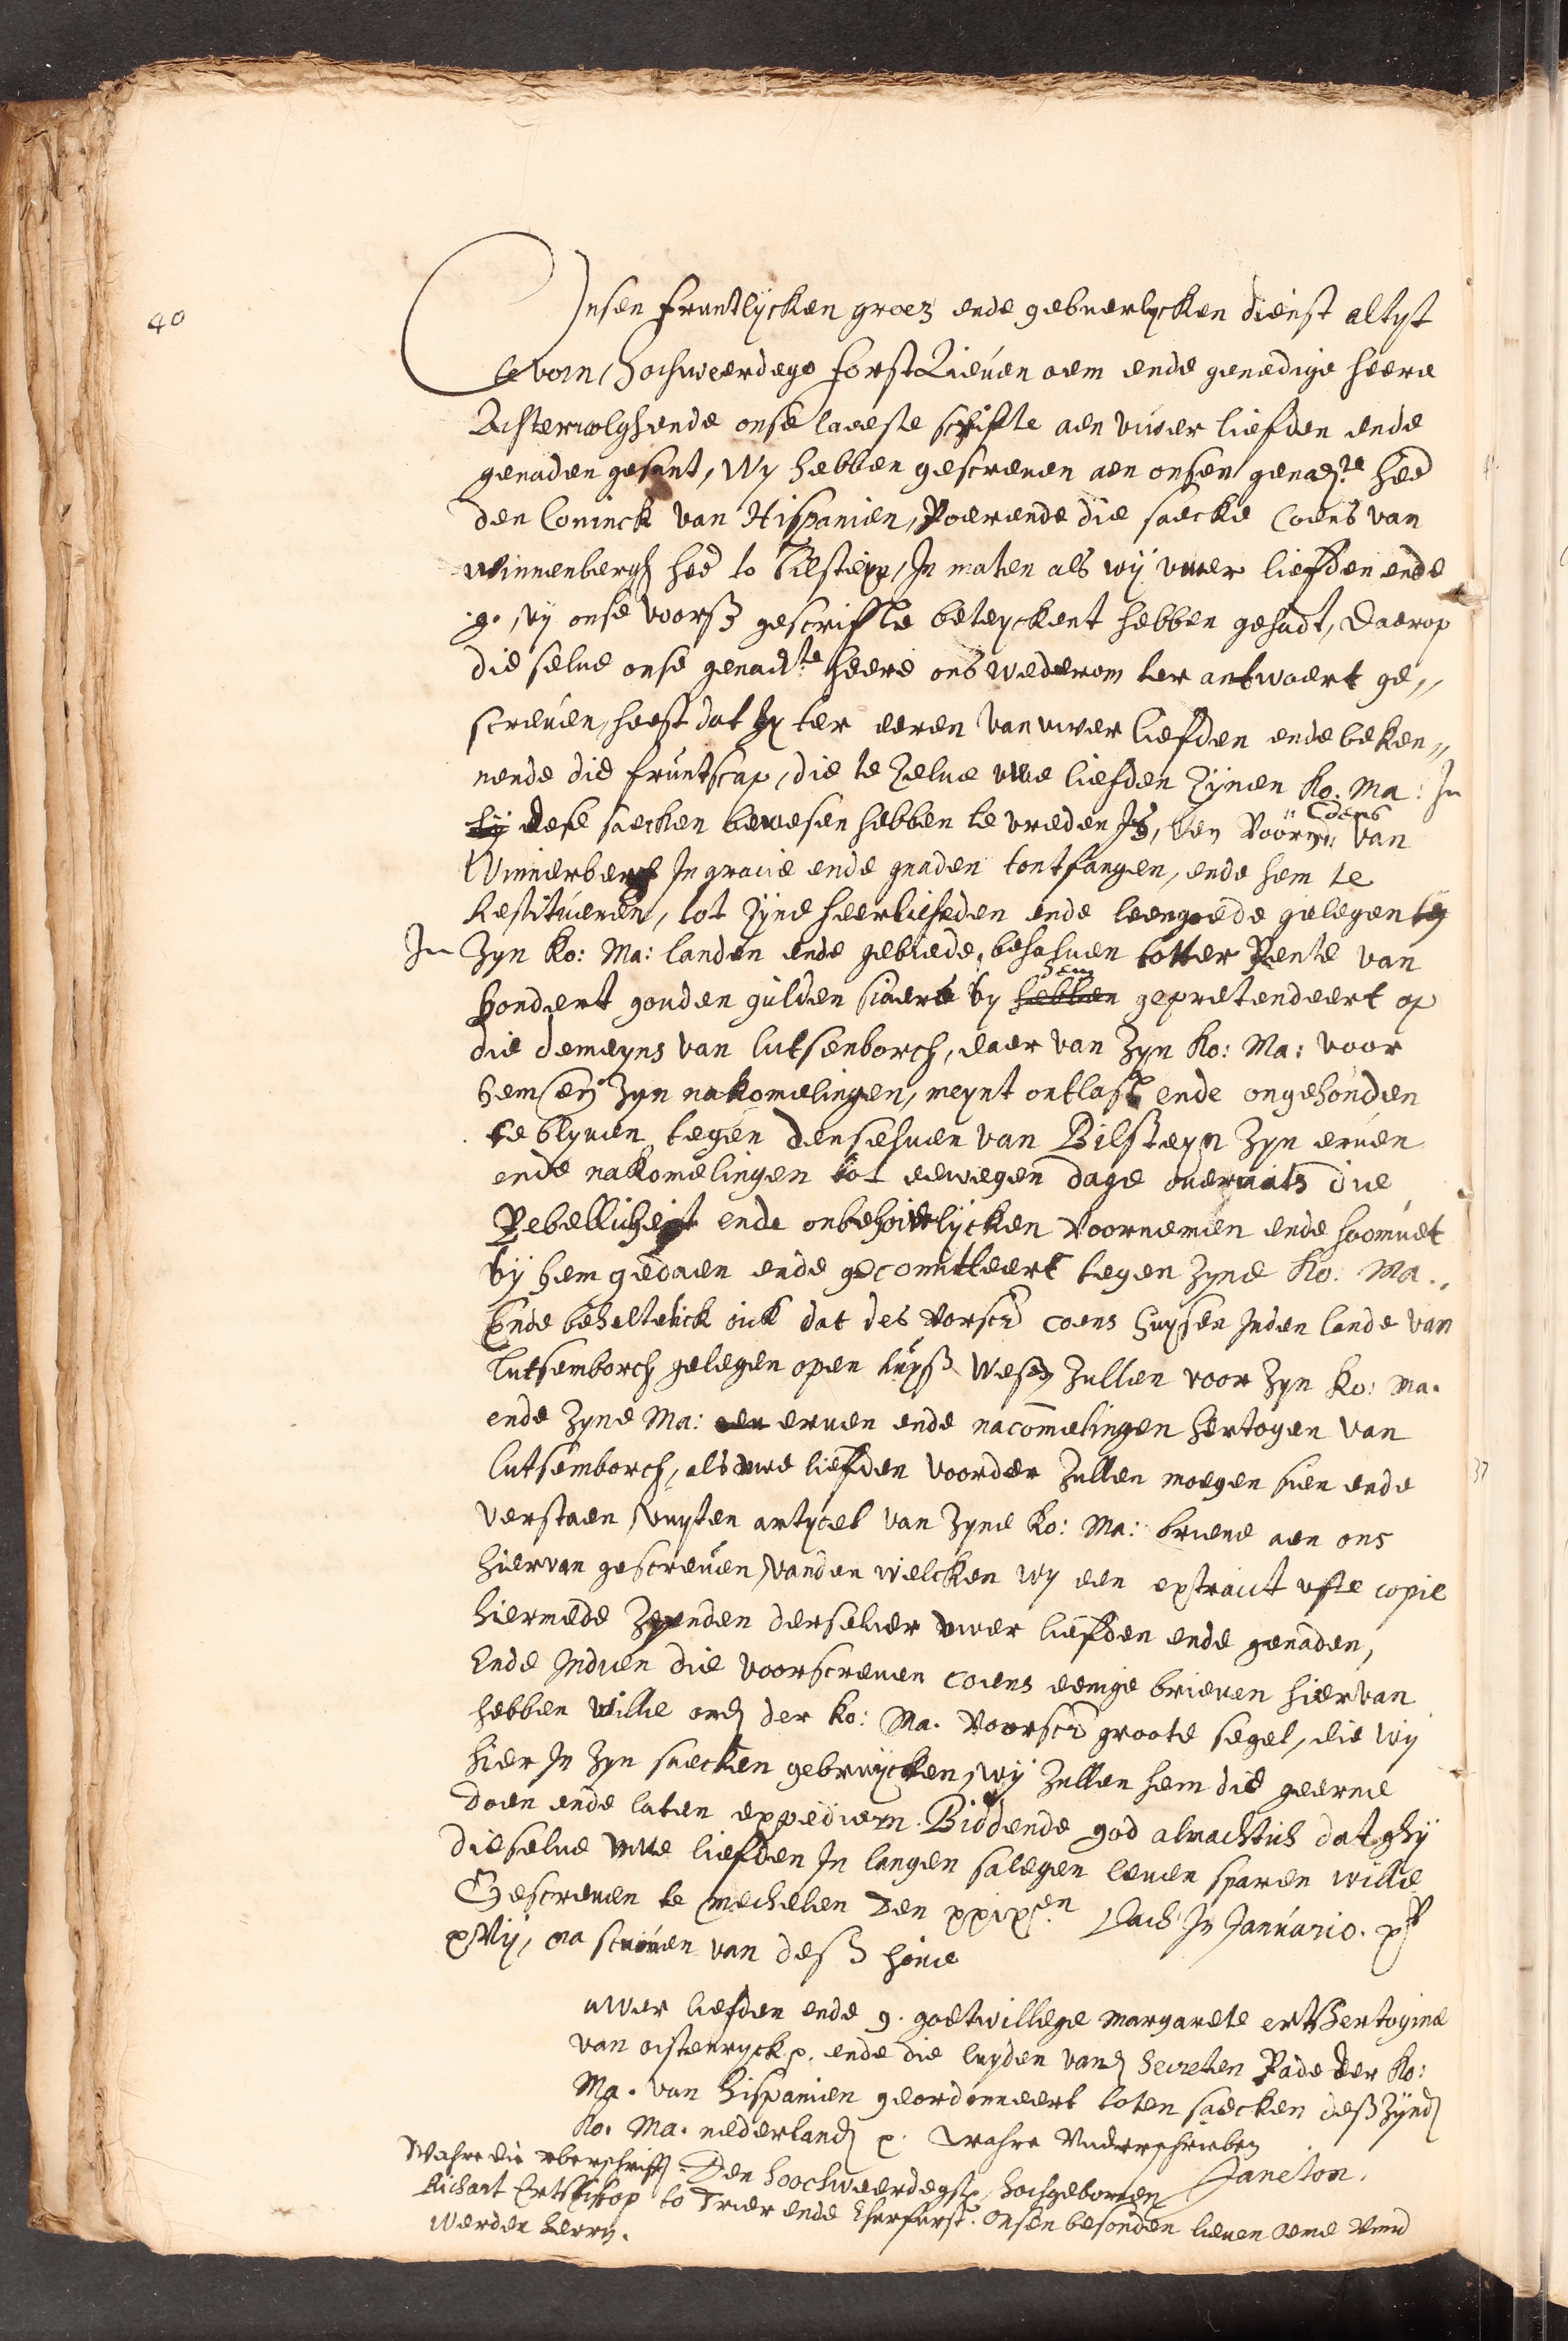 40
Onsen fruntlycken groez ende gebuerlycken dienst altyt
te vorn, Hochweerdege forst Lieuen oem ende genedige heere
Achtervolghende onse laeeste schrifte aen vuwer liefden ende
genaden gesant, Wy hebben gescreuen aen onsen genad.te heer
den Coninck van Hispanien, Roerende die saecke Coens van
Winnenbergh heer to Bilsteyn, In maten als wij vwer liefden ende
g. by onse voorß gescriffte beteyckent hebben gehadt, daerop
die selue onse genad.te heere ons wederom ter antwoert ge„
screuen heeft dat hy ter eeren van vwer liefden ende beken„
nende die fruntscap, die te zelue vwe liefden zijnen Ko. Ma: In
dese saecken bewesen hebben te vreden Is, den Voorn. Coens van
Winnerberch In gracie ende gnaden tontfangen, ende hem te
Restitueren, tot zijne heerlicheden ende leengoede gelegen
In Zyn Ko: Ma: landen ende gebiede, behaluen totter Rente van
hondert gouden gulden siaers by hem hebben gepretendeert op
die demeyns van lutsenborch, daer van Zyn Ko: Ma: voor
hem en Zyn nakomelingen, meynt ontlast ende ongehouden
te blyuen tegen denseluen van Bilsteyn Zyn eruen
ende nakomelingen tot eewegen dage ouermits die
Rebellicheyt ende onbehoirlycken voornemen ende hoomuet
by hem gedaen ende gecomitteert tegen Zyne Ko: Ma.,
Ende beheltelick oick dat des Vorscr. coens huysen Inden lande van
lutsemborch gelegen open huyß wesen Zullen voor Zyn Ko: Ma.
ende Zyne Ma: eruen ende nacommelingen hertogen van
lutsemborch, als vwe liefden voorder Zullen moegen sien ende
verstaen vuyten artycel van Zyne Ko: Ma: brieue aen ons
hiervan gescreuen, vanden welcken wy een extraict ofte copie
hiermede Zeynden derseluer vwer liefden ende genaden,
Ende Indien die voorscreuen coens eenige brieuen hier van
hebben wille ond. der Ko: Ma. Voorscr. groote segel, die wy
hier In Zyn saecken gebruycken, wy Zullen hem die geerne
doen ende laten expediern. Biddende god almachtich dat ghy
dieselue vwe liefden In langen salegen leuen sparen wille
Gescreuen te mechelen Den xxix.en Dach In Januario. xv
xvij, na scriuen van deß houe
uwer liefden ende g. goetwillege Margarete ertshertogine
van oistenryck p. ende die luyden vand. secreten Rade der Ko:
Ma. van hispanien geordonneert toten saecken deß Zynd.
Ko. Ma. nederland. p. Wahre Underschrieben
Janeton.
Wahre die vberschrifft: Den hoochweerdegste, hochgeboren
Richart Ertsbischop to Trier ende Churfurst. onsen besonden lieuen oeme Vnnd
werden herrn.